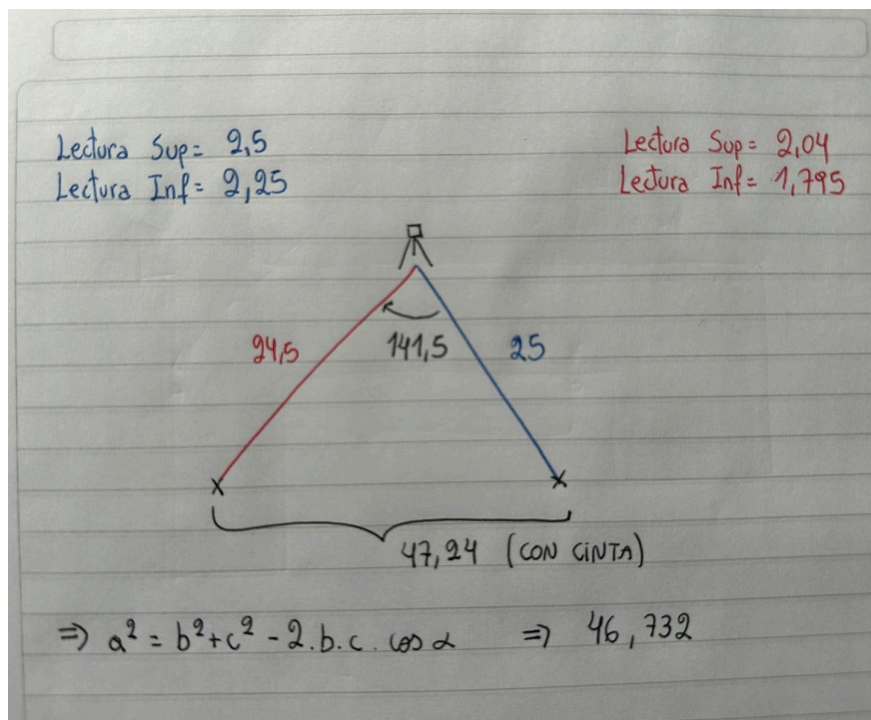 Lectura Sup= 2,5
Lectura Inf= 2,25
Lectura Sup= 2,04
Lectura Inf= 1,795
24,5
141,5
25
47,24 (CON CINTA)
⇒ a² = b²+c² - 2.b.c. cos α ⇒ 46,732